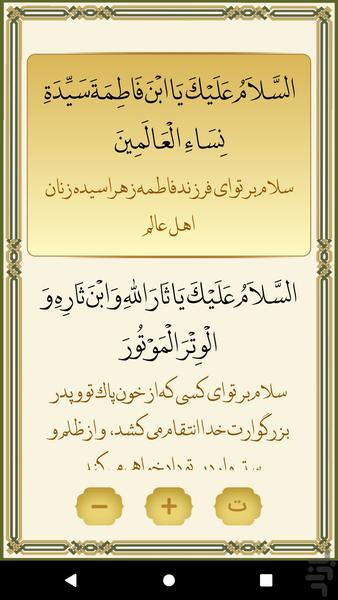 السَّلاَمُ عَلَيْكَ يَا ابْنَ فَاطِمَةَ سَيِّدَةِ
نِسَاءِ الْعَالَمِينَ
سلام بر تو ای فرزند فاطمه زهرا سیده زنان
اهل عالم
السَّلاَمُ عَلَيْكَ يَا ثَارَ اللَّهِ وَ ابْنَ ثَارِهِ وَ
الْوِتْرَ الْمَوْتُورَ
سلام بر تو ای کسی که از خون پاک تو و پدر
بزرگوارت خدا انتقام می‌کشد، و از ظلم و
ت
+
−
بازار